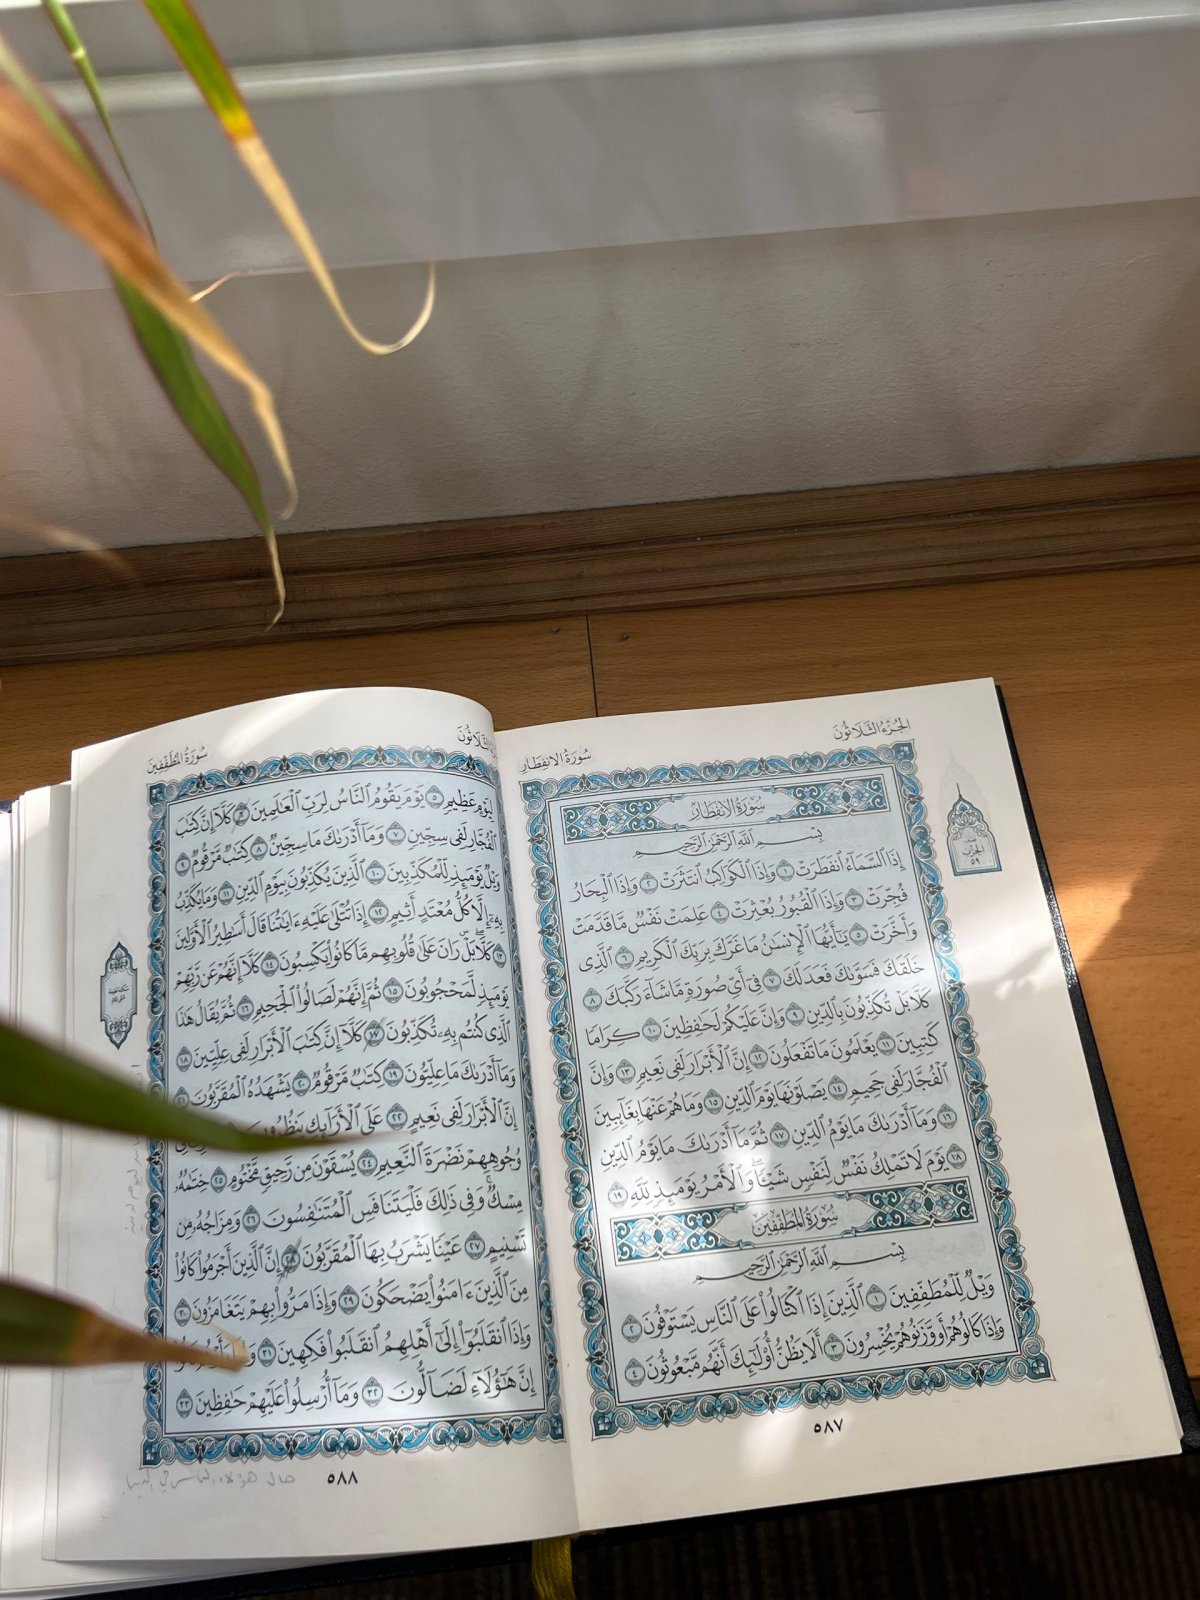 الجُزْءُ الثَّلَاثُونَ
سُورَةُ الانفِطَارِ
سُورَةُ الانفِطَارِ
بِسْمِ ٱللَّهِ ٱلرَّحْمَٰنِ ٱلرَّحِيمِ
إِذَا ٱلسَّمَآءُ ٱنفَطَرَتْ ١ وَإِذَا ٱلْكَوَاكِبُ ٱنتَثَرَتْ ٢ وَإِذَا ٱلْبِحَارُ
فُجِّرَتْ ٣ وَإِذَا ٱلْقُبُورُ بُعْثِرَتْ ٤ عَلِمَتْ نَفْسٌ مَّا قَدَّمَتْ
وَأَخَّرَتْ ٥ يَٰٓأَيُّهَا ٱلْإِنسَٰنُ مَا غَرَّكَ بِرَبِّكَ ٱلْكَرِيمِ ٦ ٱلَّذِى
خَلَقَكَ فَسَوَّىٰكَ فَعَدَلَكَ ٧ فِىٓ أَىِّ صُورَةٍ مَّا شَآءَ رَكَّبَكَ ٨
كَلَّا بَلْ تُكَذِّبُونَ بِٱلدِّينِ ٩ وَإِنَّ عَلَيْكُمْ لَحَٰفِظِينَ ١٠ كِرَامًا
كَٰتِبِينَ ١١ يَعْلَمُونَ مَا تَفْعَلُونَ ١٢ إِنَّ ٱلْأَبْرَارَ لَفِى نَعِيمٍ ١٣ وَإِنَّ
ٱلْفُجَّارَ لَفِى جَحِيمٍ ١٤ يَصْلَوْنَهَا يَوْمَ ٱلدِّينِ ١٥ وَمَا هُمْ عَنْهَا بِغَآئِبِينَ
١٦ وَمَآ أَدْرَىٰكَ مَا يَوْمُ ٱلدِّينِ ١٧ ثُمَّ مَآ أَدْرَىٰكَ مَا يَوْمُ ٱلدِّينِ
١٨ يَوْمَ لَا تَمْلِكُ نَفْسٌ لِّنَفْسٍ شَيْـًٔا ۖ وَٱلْأَمْرُ يَوْمَئِذٍ لِّلَّهِ ١٩
سُورَةُ المُطَفِّفِينَ
بِسْمِ ٱللَّهِ ٱلرَّحْمَٰنِ ٱلرَّحِيمِ
وَيْلٌ لِّلْمُطَفِّفِينَ ١ ٱلَّذِينَ إِذَا ٱكْتَالُوا۟ عَلَى ٱلنَّاسِ يَسْتَوْفُونَ ٢
وَإِذَا كَالُوهُمْ أَو وَّزَنُوهُمْ يُخْسِرُونَ ٣ أَلَا يَظُنُّ أُو۟لَٰٓئِكَ أَنَّهُم مَّبْعُوثُونَ ٤
الحزب
٥٩
٥٨٧
سُورَةُ المُطَفِّفِينَ
لِيَوْمٍ عَظِيمٍ ٥ يَوْمَ يَقُومُ ٱلنَّاسُ لِرَبِّ ٱلْعَٰلَمِينَ ٦ كَلَّآ إِنَّ كِتَٰبَ
ٱلْفُجَّارِ لَفِى سِجِّينٍ ٧ وَمَآ أَدْرَىٰكَ مَا سِجِّينٌ ٨ كِتَٰبٌ مَّرْقُومٌ ٩
وَيْلٌ يَوْمَئِذٍ لِّلْمُكَذِّبِينَ ١٠ ٱلَّذِينَ يُكَذِّبُونَ بِيَوْمِ ٱلدِّينِ ١١ وَمَا يُكَذِّبُ
بِهِۦٓ إِلَّا كُلُّ مُعْتَدٍ أَثِيمٍ ١٢ إِذَا تُتْلَىٰ عَلَيْهِ ءَايَٰتُنَا قَالَ أَسَٰطِيرُ ٱلْأَوَّلِينَ
١٣ كَلَّا ۖ بَلْ ۜ رَانَ عَلَىٰ قُلُوبِهِم مَّا كَانُوا۟ يَكْسِبُونَ ١٤ كَلَّآ إِنَّهُمْ عَن رَّبِّهِمْ
يَوْمَئِذٍ لَّمَحْجُوبُونَ ١٥ ثُمَّ إِنَّهُمْ لَصَالُوا۟ ٱلْجَحِيمِ ١٦ ثُمَّ يُقَالُ هَٰذَا
ٱلَّذِى كُنتُم بِهِۦ تُكَذِّبُونَ ١٧ كَلَّآ إِنَّ كِتَٰبَ ٱلْأَبْرَارِ لَفِى عِلِّيِّينَ ١٨
وَمَآ أَدْرَىٰكَ مَا عِلِّيُّونَ ١٩ كِتَٰبٌ مَّرْقُومٌ ٢٠ يَشْهَدُهُ ٱلْمُقَرَّبُونَ
إِنَّ ٱلْأَبْرَارَ لَفِى نَعِيمٍ ٢٢ عَلَى ٱلْأَرَآئِكِ يَنظُرُونَ
وُجُوهِهِمْ نَضْرَةَ ٱلنَّعِيمِ ٢٤ يُسْقَوْنَ مِن رَّحِيقٍ مَّخْتُومٍ ٢٥ خِتَٰمُهُۥ
مِسْكٌ ۚ وَفِى ذَٰلِكَ فَلْيَتَنَافَسِ ٱلْمُتَنَٰفِسُونَ ٢٦ وَمِزَاجُهُۥ مِن
تَسْنِيمٍ ٢٧ عَيْنًا يَشْرَبُ بِهَا ٱلْمُقَرَّبُونَ ٢٨ إِنَّ ٱلَّذِينَ أَجْرَمُوا۟ كَانُوا۟
مِنَ ٱلَّذِينَ ءَامَنُوا۟ يَضْحَكُونَ ٢٩ وَإِذَا مَرُّوا۟ بِهِمْ يَتَغَامَزُونَ ٣٠
وَإِذَا ٱنقَلَبُوٓا۟ إِلَىٰٓ أَهْلِهِمُ ٱنقَلَبُوا۟ فَكِهِينَ ٣١
إِنَّ هَٰٓؤُلَآءِ لَضَآلُّونَ ٣٢ وَمَآ أُرْسِلُوا۟ عَلَيْهِمْ حَٰفِظِينَ ٣٣
٥٨٨